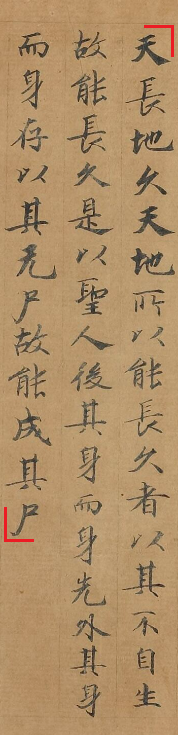 天長地久天地所以能長久者以其不自生
故能長久是以聖人後其身而身先外其身
而身存以其无尸故能成其尸